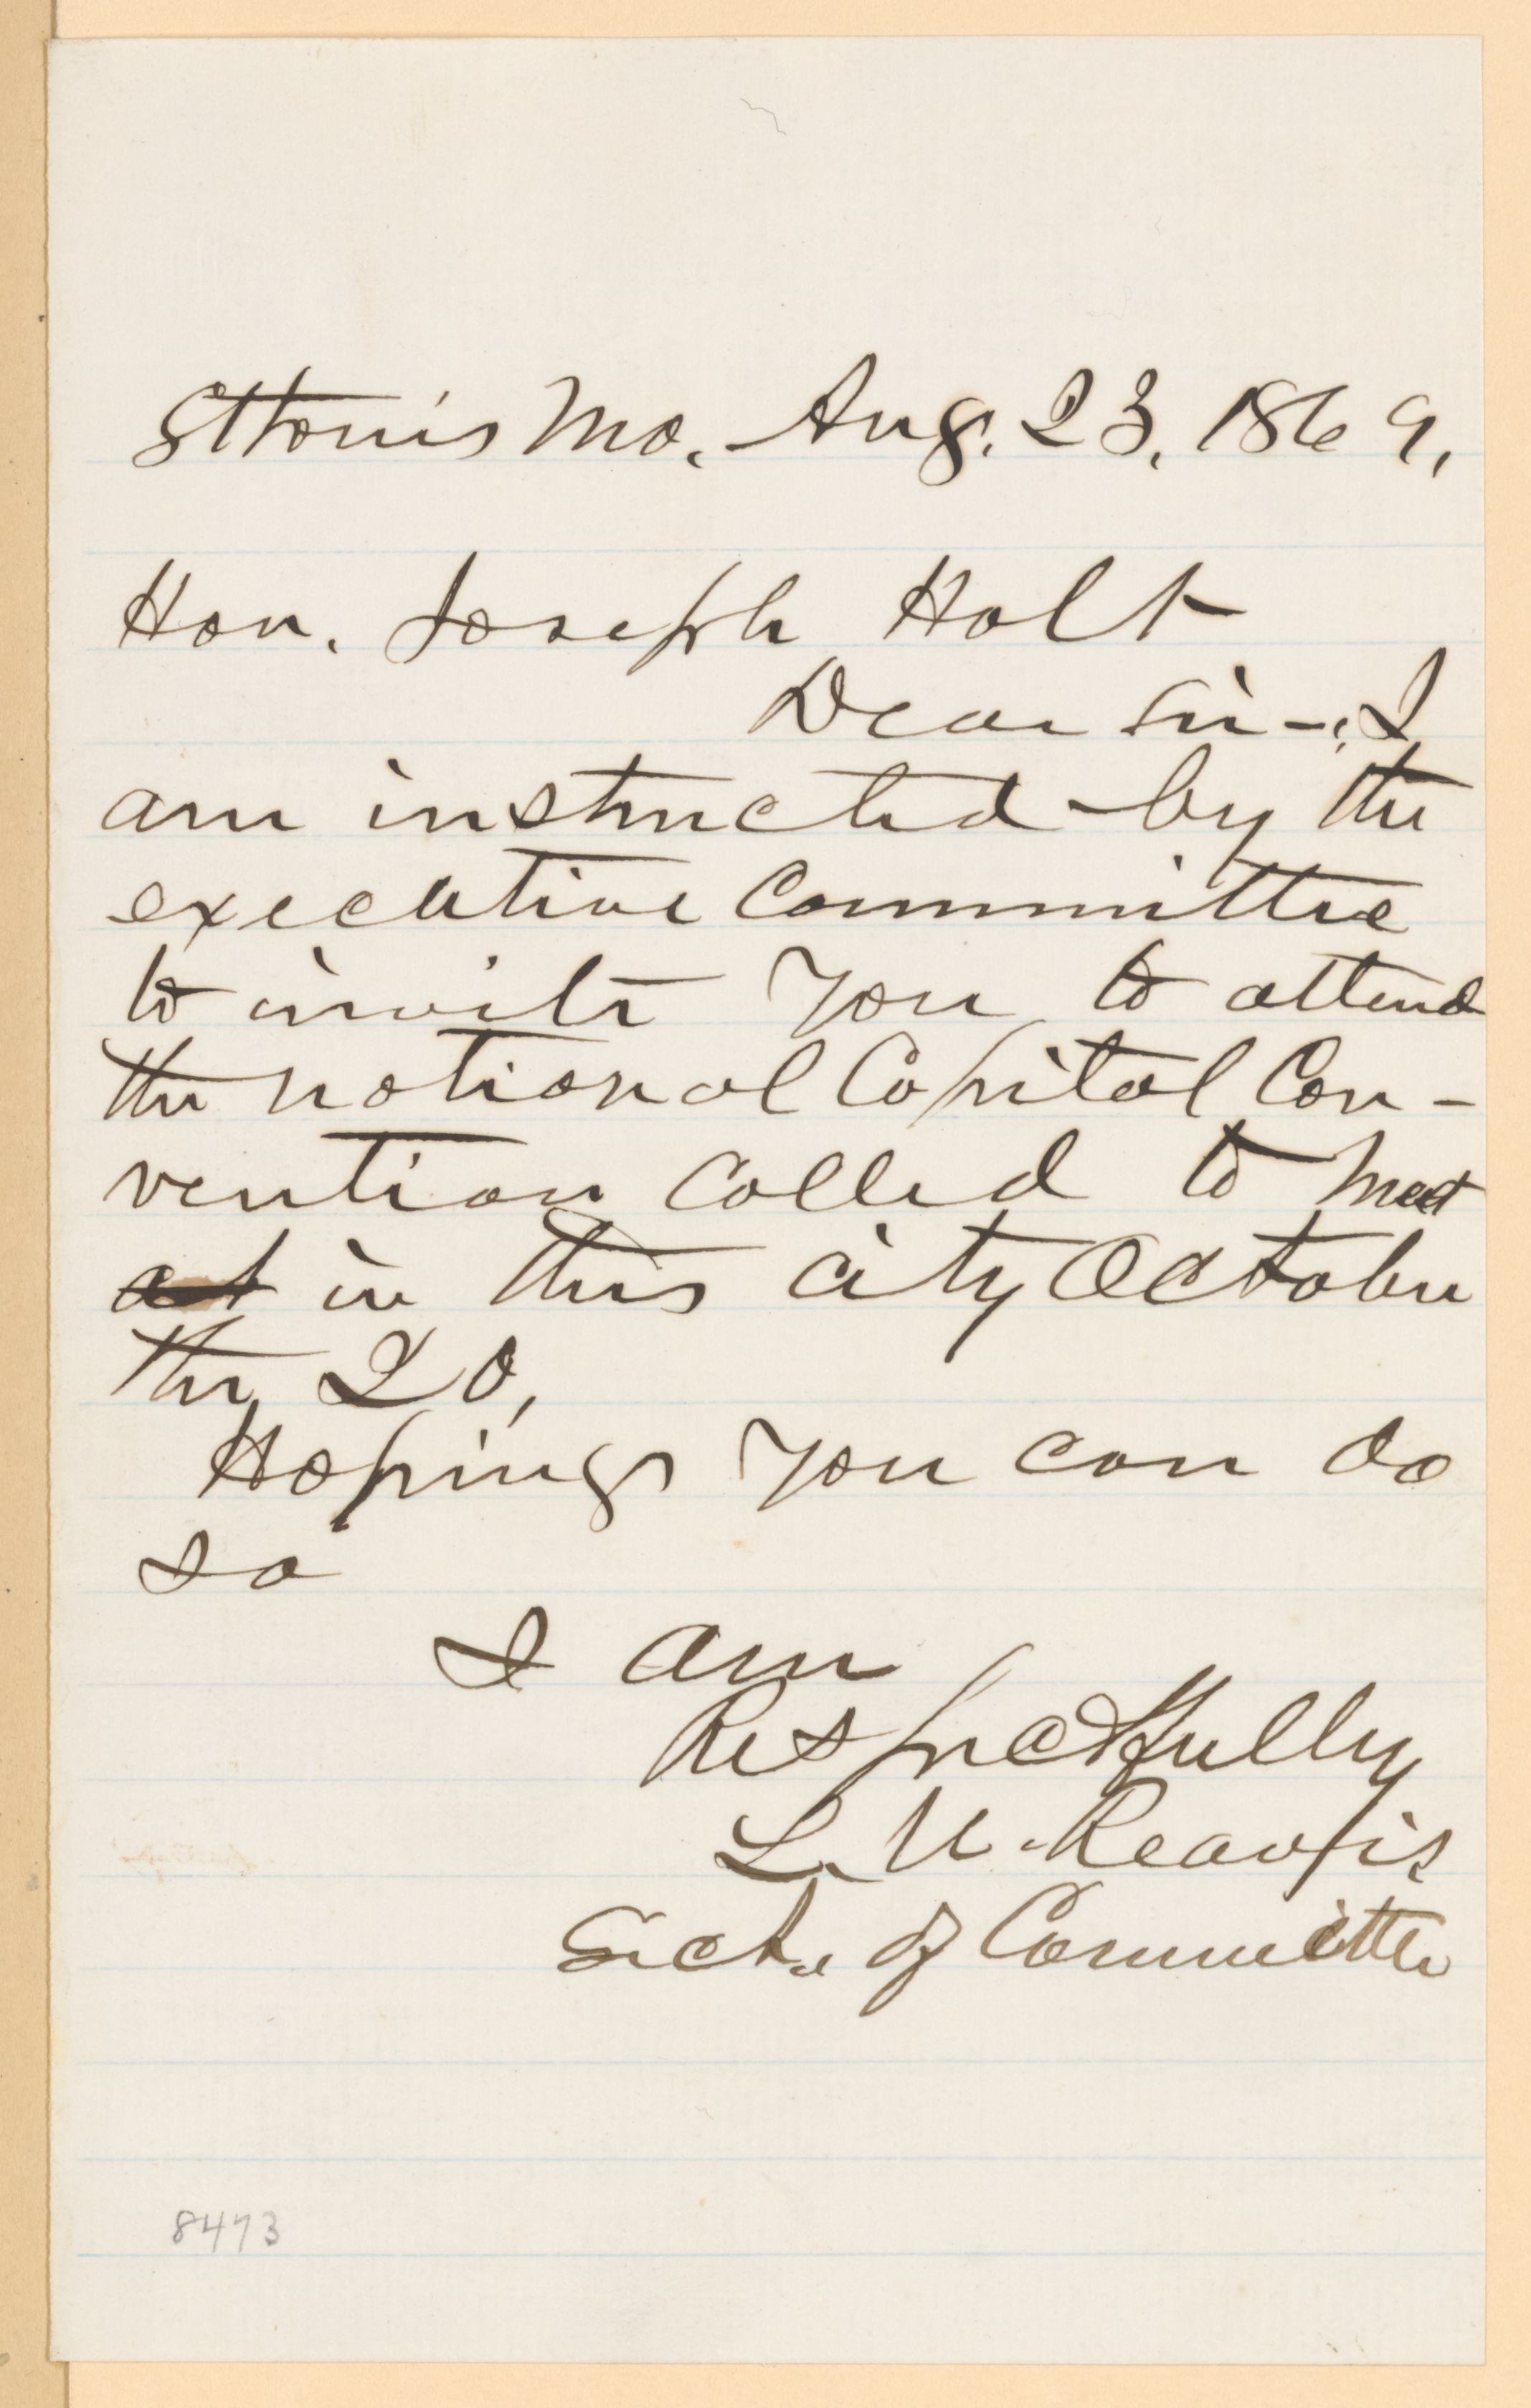 St Louis Mo. Aug. 23, 1869,
Hon. Joseph Holt
Dear Sir-: I
am instructed by the
executive Committee
to invite you to attend
the national Capital Con-
vention Called to meet
at in this city October
the 20,
Hoping you can do
so
I am
Respectfully
L. U. Reavis
Sect. of Committee
8473